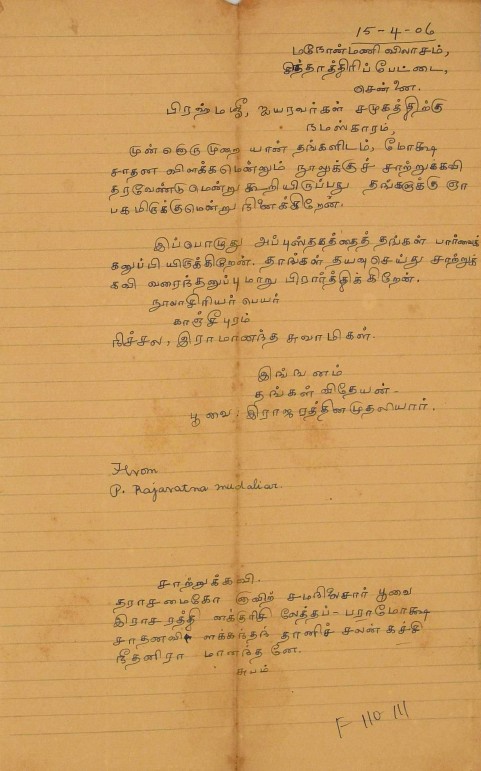 15-4-06
மநோன்மணி விலாசம்,
சிந்தாத்திரிப்பேட்டை,
சென்னை.
பிரஹ்மஸ்ரீ, ஐயரவர்கள் சமுகத்திற்கு
நமஸ்காரம்,
முன்னொருமுறை யான் தங்களிடம், மோக்ஷ
சாதன விளக்கமென்னும் நூலுக்குச் சாற்றுக்கவி
தரவேண்டுமென்று கூறியிருப்பது தங்களுக்கு ஞா
பகமிருக்குமென்று நினைக்கிறேன்.
இப்பொழுது அப்புஸ்தகத்தைத் தங்கள் பார்வைக்
கனுப்பியிருக்கிறேன். தாங்கள் தயவுசெய்து சாற்றுக்
கவி வரைந்தனுப்புமாறு பிரார்த்திக்கிறேன்.
நூலாசிரியர் பெயர்
காஞ்சீபுரம்
நிச்சல, இராமானந்த சுவாமிகள்.
இங்ஙனம்
தங்கள் விதேயன் -
பூவை, இராஜரத்தினமுதலியார்.
From
P. Rajaratna mudaliar.
சாற்றுக்கவி.
தராசமைகோ சமநிலைசார் பூவை
இராசரத்தி பராமோக்ஷ
சாதனவி ளக்கந்தந் தானிச் சலன் கச்சி
நீதனிரா மானந்த னே.
சுபம்
F 110 111